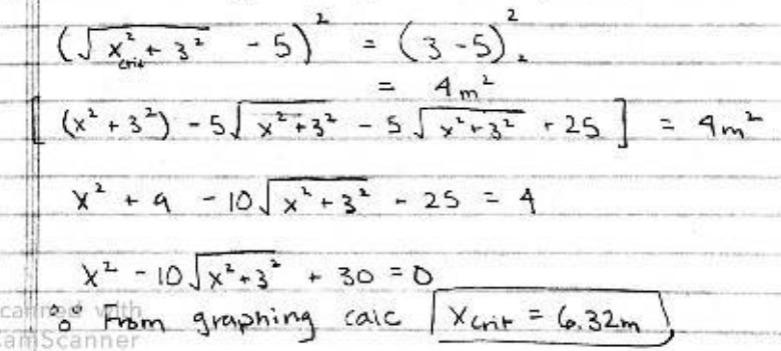 (√(x_crit² + 3²) - 5)² = (3 - 5)²
= 4m²
[(x² + 3²) - 5√(x² + 3²) - 5√(x² + 3²) + 25] = 4m²
x² + 9 - 10√(x² + 3²) - 25 = 4
x² - 10√(x² + 3²) + 30 = 0
∴ From graphing calc x_crit = 6.32m
Scanned with
CamScanner